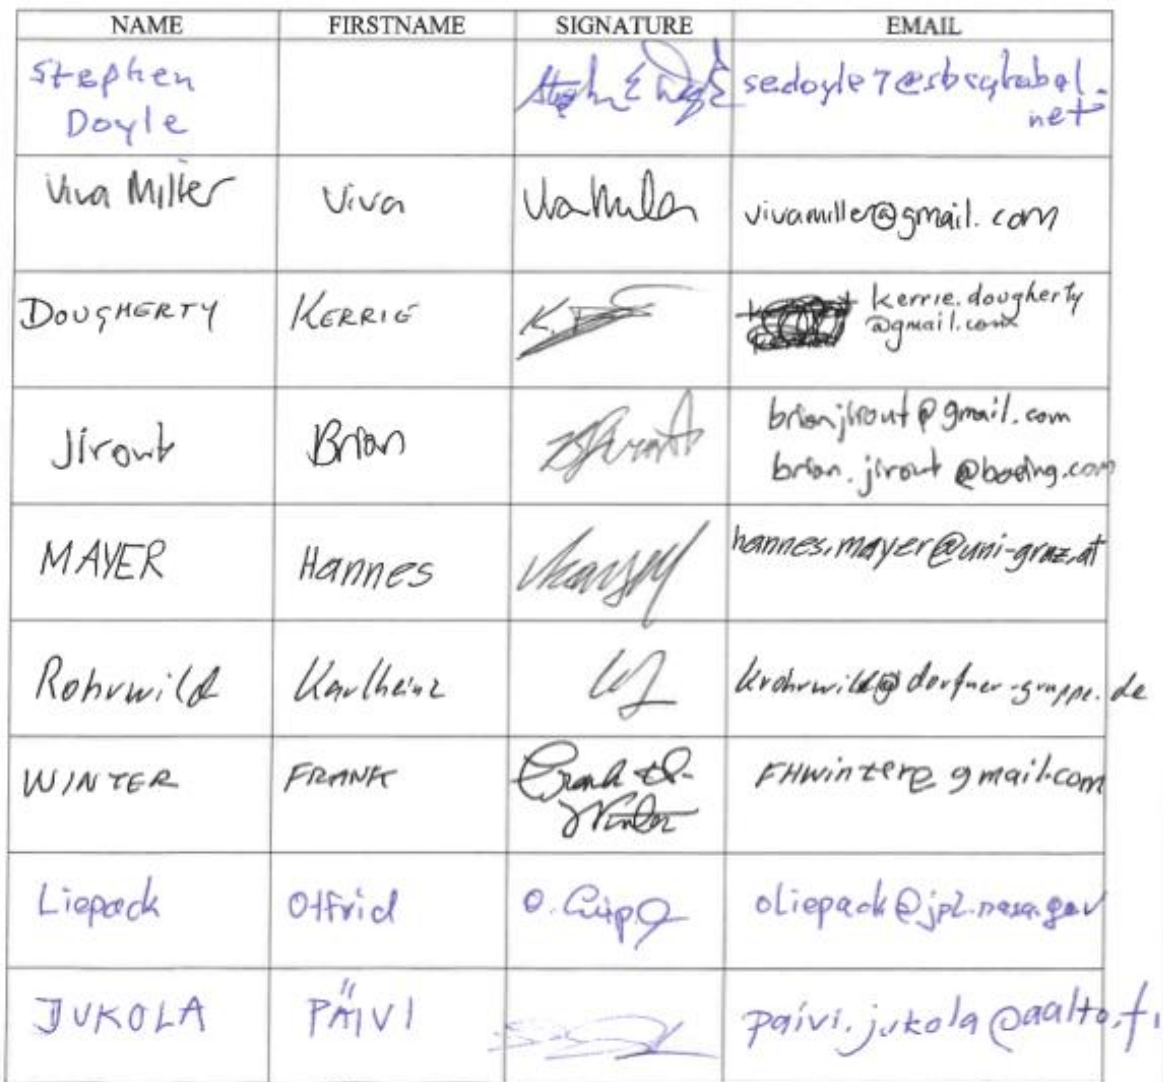 NAME FIRSTNAME SIGNATURE EMAIL
Stephen
Doyle
sedoyle7@sbcglobal.
net
Viva Miller Viva vivamiller@gmail.com
DOUGHERTY KERRIE kerrie.dougherty
@gmail.com
Jirout Brian brianjirout@gmail.com
brian.jirout@boeing.com
MAYER Hannes hannes.mayer@uni-graz.at
Rohrwild Karlheinz krohrwild@dorfner-gruppe.de
WINTER FRANK Frank H. FHwinter@gmail.com
Winter
Liepack Otfrid oliepack@jpl.nasa.gov
JUKOLA PÄIVI paivi.jukola@aalto.fi